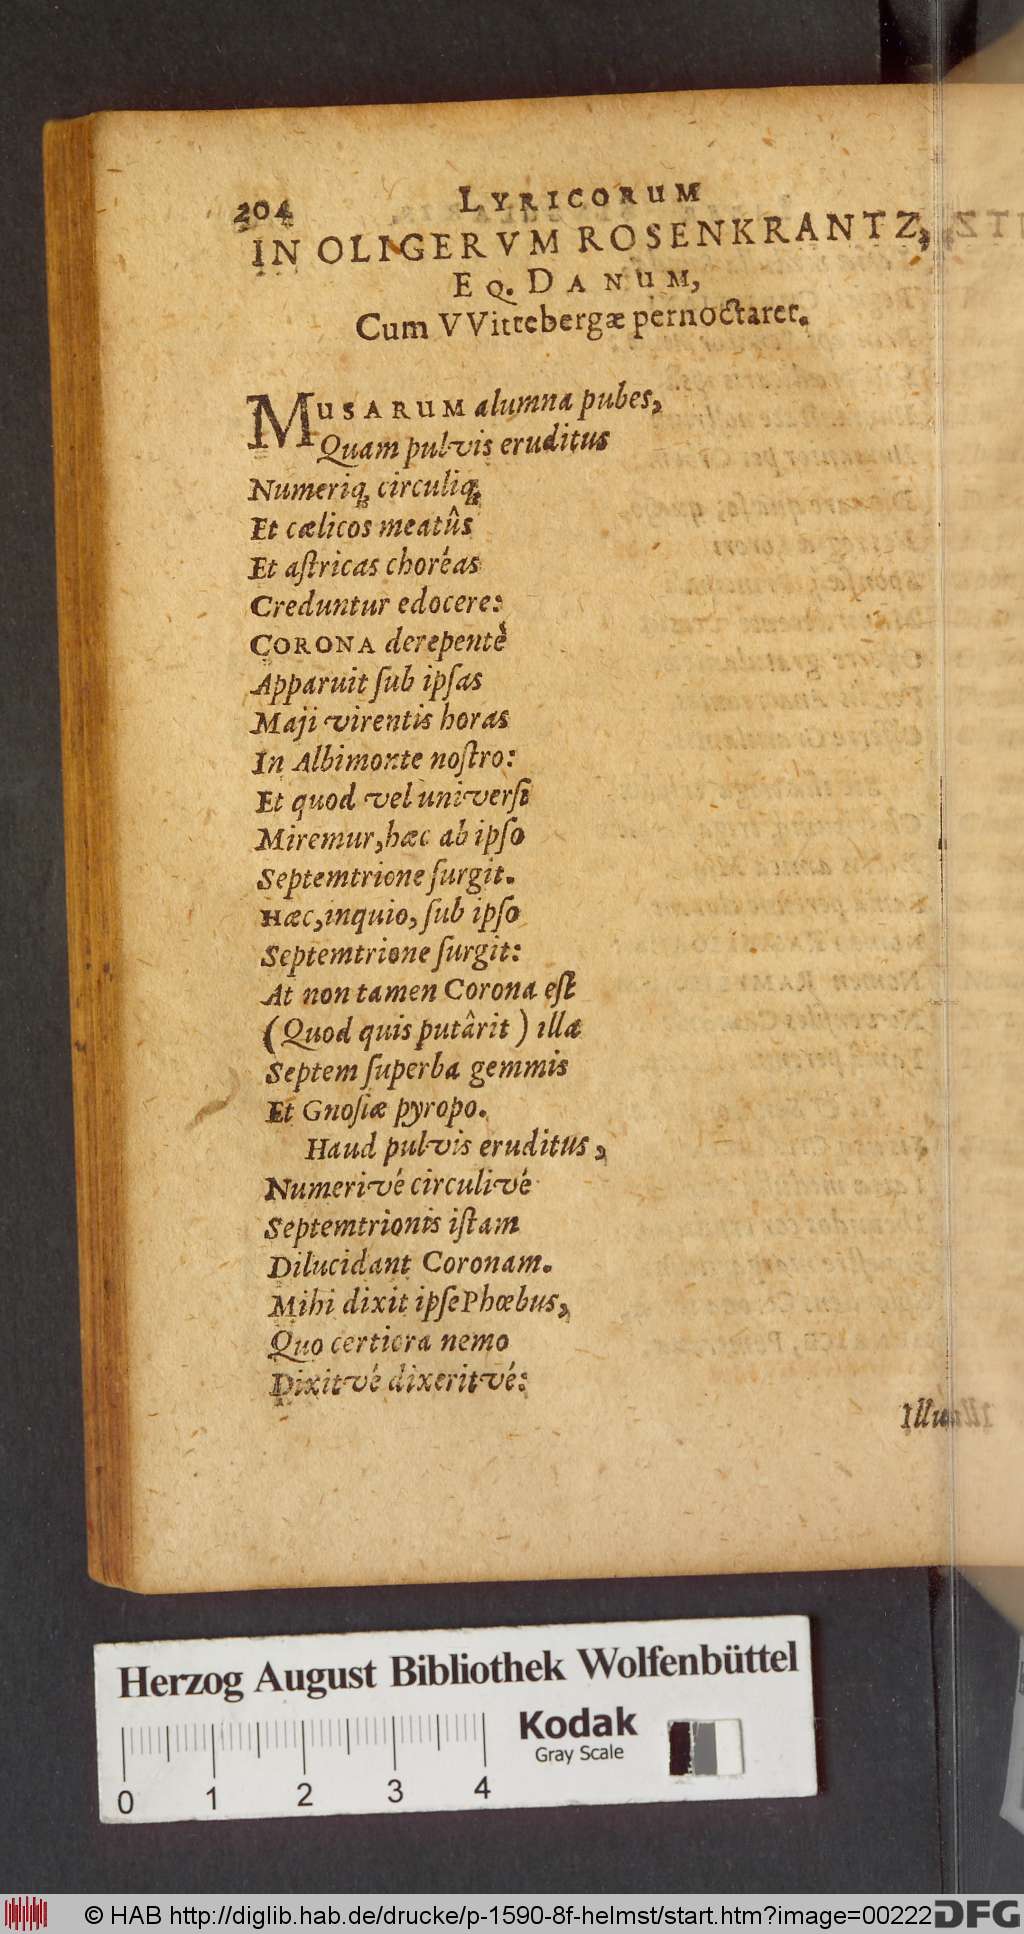 204 LYRICORUM
IN OLIGERVM ROSENKRANTZ,
EQ. DANUM,
Cum VVittebergæ pernoctaret.
MUSARUM alumna pubes,
Quam pulvis eruditus
Numeriq; circuliq;
Et cælicos meatûs
Et aſtricas choréas
Creduntur edocere:
CORONA derepentè
Apparuit ſub ipſas
Maji virentis horas
In Albimonte noſtro:
Et quod vel univerſi
Miremur, hæc ab ipſo
Septemtrione ſurgit.
Hæc, inquio, ſub ipſo
Septemtrione ſurgit:
At non tamen Corona eſt
(Quod quis putârit) illa
Septem ſuperba gemmis
Et Gnoſiæ pyropo.
Haud pulvis eruditus,
Numerivé circulivé
Septemtrionis iſtam
Dilucidant Coronam.
Mihi dixit ipſe Phœbus,
Quo certiora nemo
Dixitvé dixeritvé:
Herzog August Bibliothek Wolfenbüttel
Kodak
Gray Scale
0 1 2 3 4
© HAB http://diglib.hab.de/drucke/p-1590-8f-helmst/start.htm?image=00222
DFG